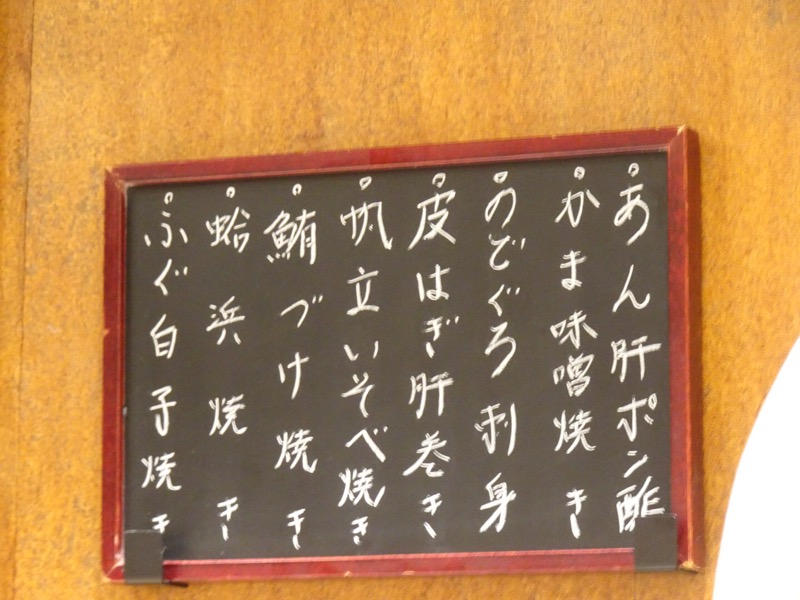 。あん肝ポン酢
。かま味噌焼き
。のどぐろ刺身
。皮はぎ肝巻き
。帆立いそべ焼き
。鮪づけ焼き
。蛤浜焼き
。ふぐ白子焼き